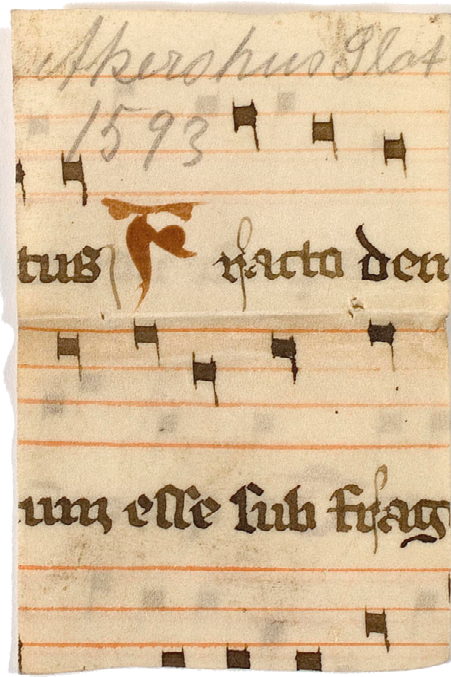 Akershus Slot
1593
tus Fracto dem
um esse sub frag